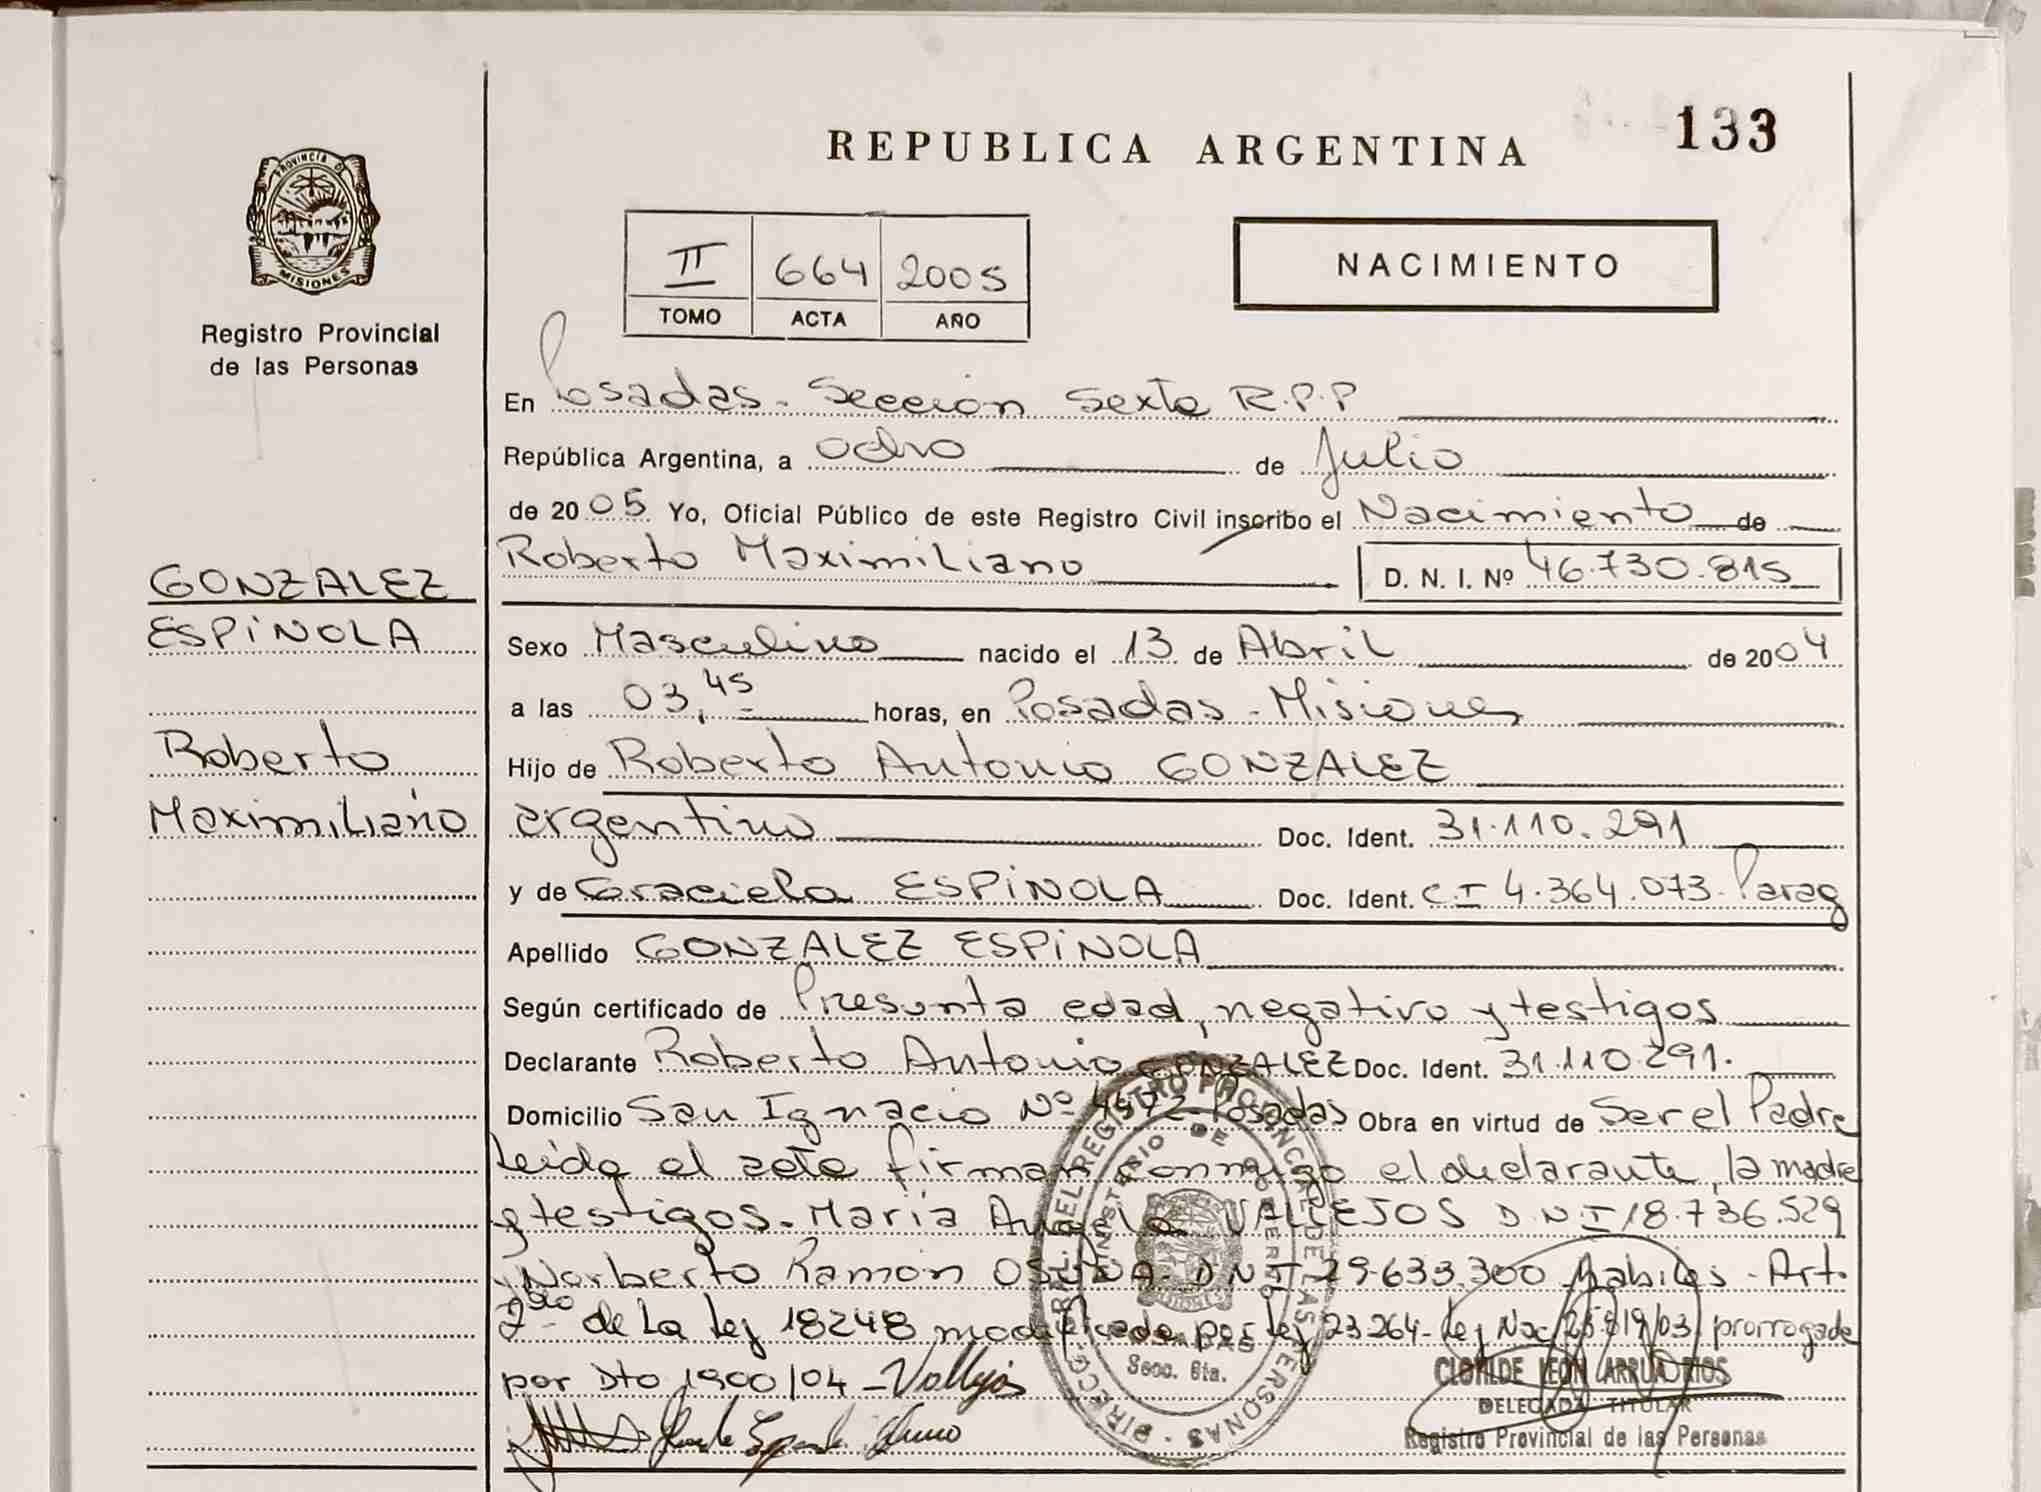 133
REPUBLICA ARGENTINA
PROVINCIA D
MISIONES
Registro Provincial
de las Personas
II 664 2005
TOMO ACTA AÑO
NACIMIENTO
En Posadas - Sección Sexta R.P.P
República Argentina, a ocho de Julio
de 2005 Yo, Oficial Público de este Registro Civil inscribo el Nacimiento de
Roberto Maximiliano D. N. I. Nº 46.730.815
GONZALEZ
ESPINOLA
Roberto
Maximiliano
Sexo Masculino nacido el 13 de Abril de 2004
a las 03,45 horas, en Posadas - Misiones
Hijo de Roberto Antonio GONZALEZ
argentino Doc. Ident. 31.110.291
y de Graciela ESPINOLA Doc. Ident. C I 4.364.073 - Parag
Apellido GONZALEZ ESPINOLA
Según certificado de Presunta edad, negativo y testigos
Declarante Roberto Antonio GONZALEZ Doc. Ident. 31.110.291.
Domicilio San Ignacio Nº Posadas Obra en virtud de Ser el Padre
Leida el acta firman conmigo el declarante, la madre
y testigos - María VALLEJOS D N I 18.736.529
Norberto Ramón D N I 29.633.300 habiles - Art.
2do de la Ley 18248 modificada por ley 23264 - Ley Nac 25.819/03 prorrogada
por Dto 1900/04 - Vallejos
DIRECC. GRAL. DEL REGISTRO PROVINCIAL DE LAS PERSONAS
MINISTERIO DE GOBIERNO
POSADAS
Secc. 6ta.
CLOTILDE LEON ARRUA RIOS
DELEGADA TITULAR
Registro Provincial de las Personas